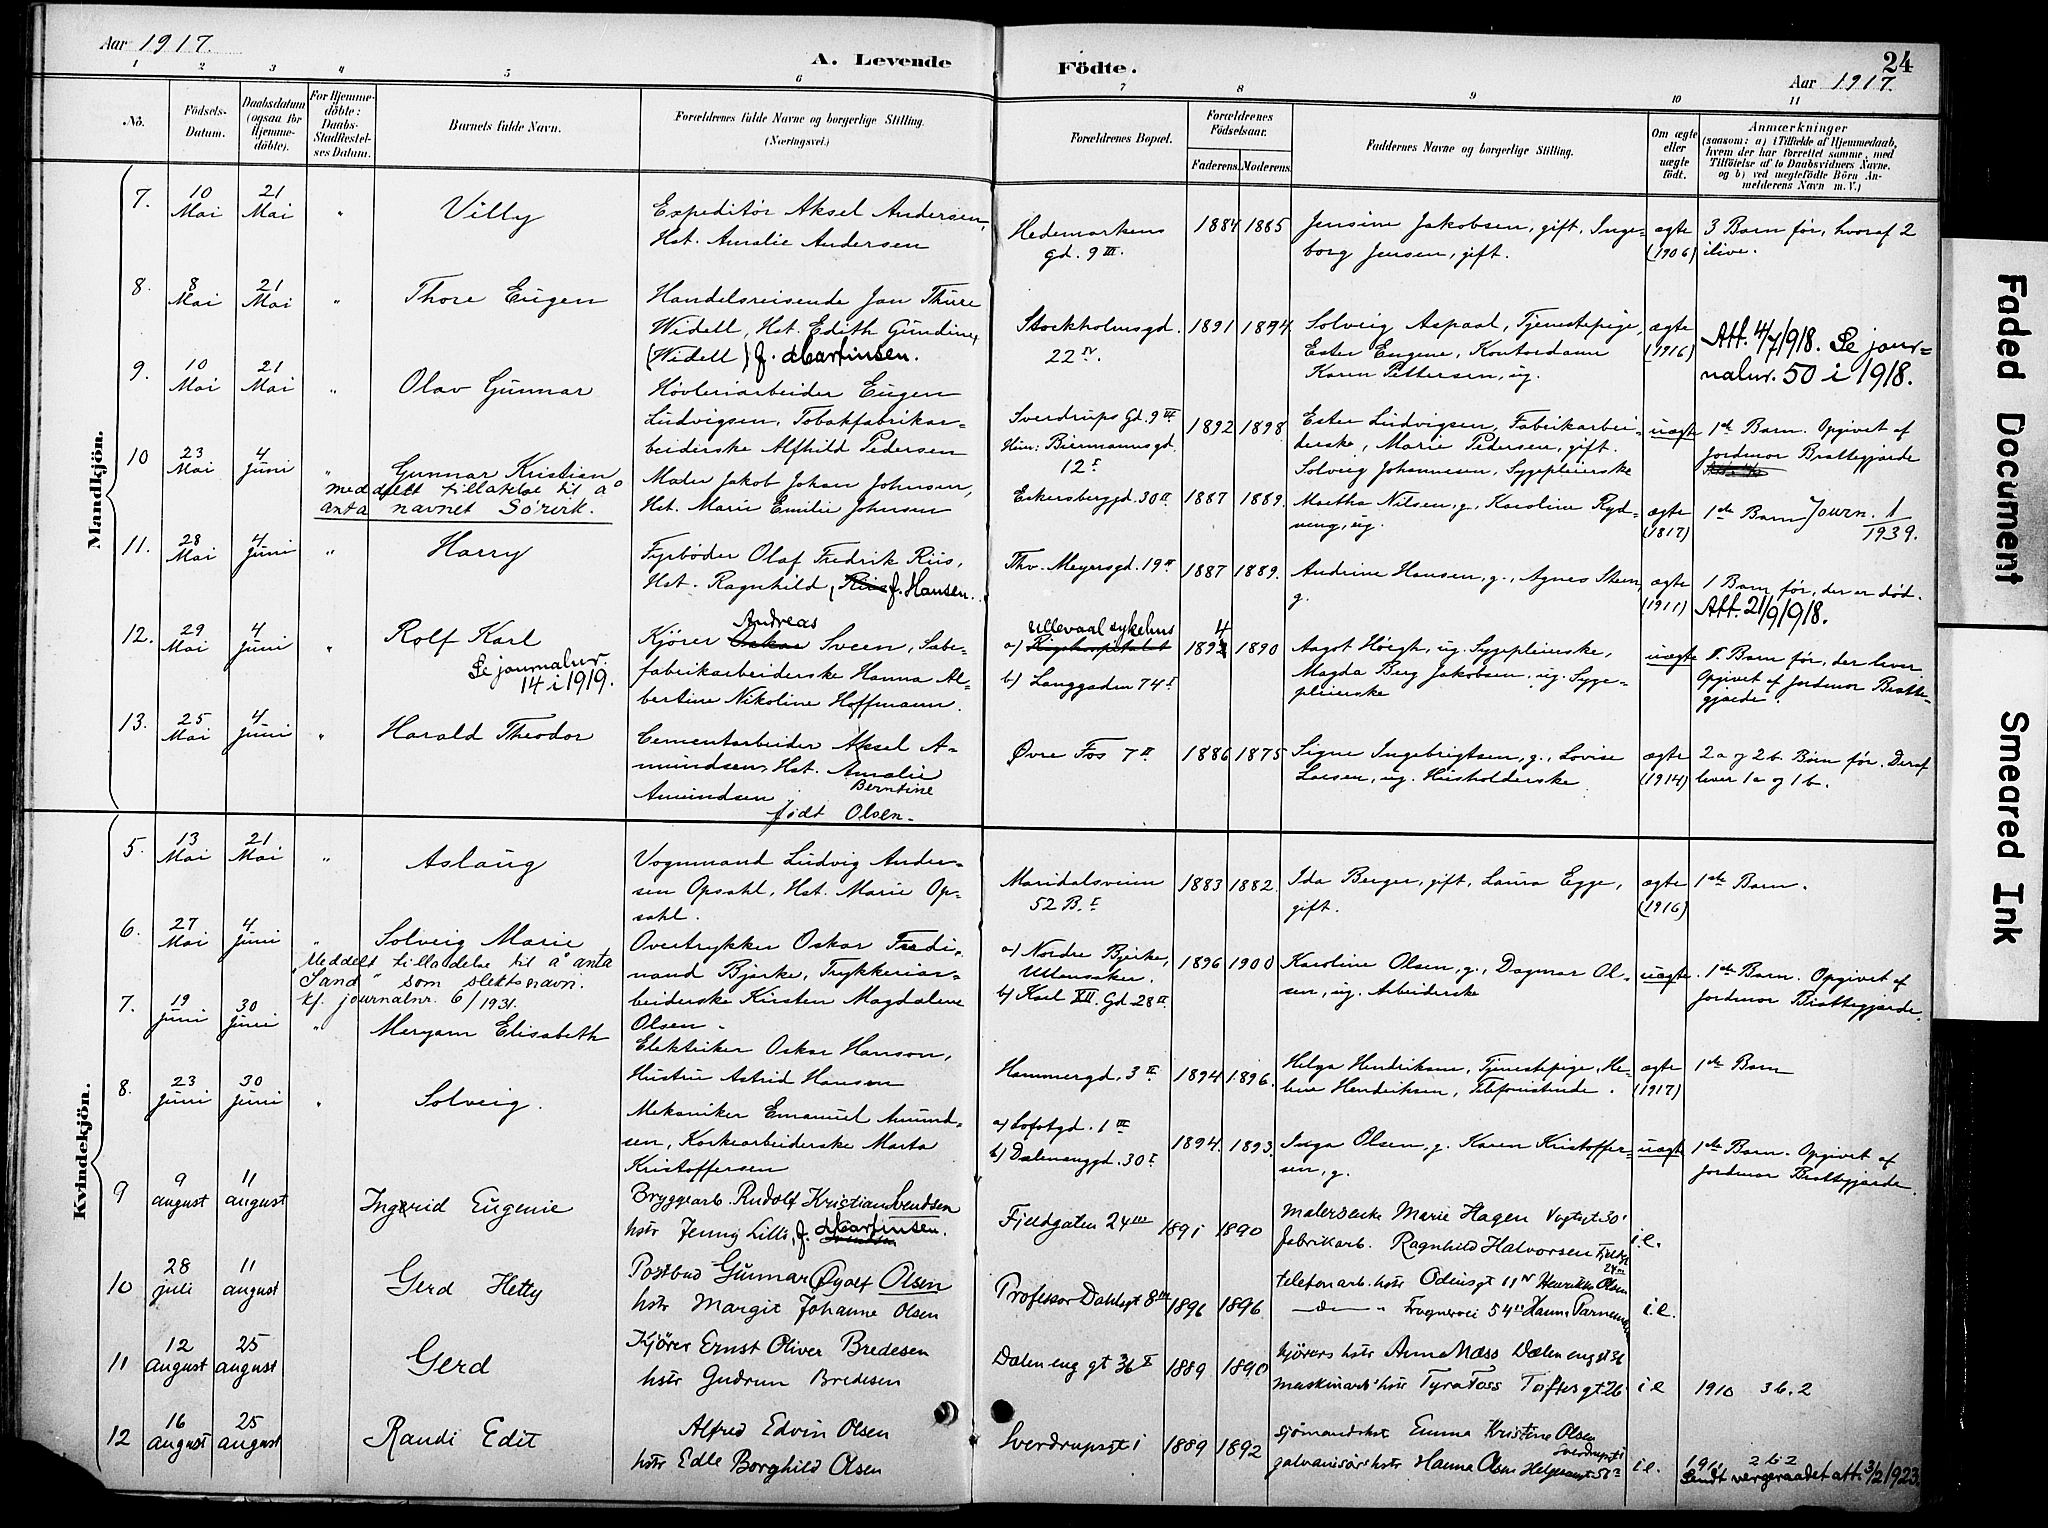 Aar 1917.
A. Levende
Födte.
24
Aar 1917.
1 2 3 4 5 6 7 8 9 10 11
No.
Födsels-
Datum.
Daabsdatum
(ogsaa for
Hjemme-
döbte).
For Hjemme-
döbte:
Daabs-
Stadfæstel-
ses Datum.
Barnets fulde Navn.
Forældrenes fulde Navne og borgerlige Stilling.
(Næringsvei.)
Forældrenes Bopæl.
Forældrenes
Födselsaar.
Faderens. Moderens.
Faddernes Navne og borgerlige Stilling.
Om ægte
eller
uægte
født.
Anmærkninger
(saasom: a) i Tilfælde af Hjemmedaab,
hvem der har forrettet samme, med
Tilföielse af to Daabsvidners Navne.
og b) ved uægtefödte Börn An-
melderens Navn m. V.)
Mandkjön.
7. 10 Mai 21 Mai " Villy
Expeditør Aksel Andersen,
Hst. Amalie Andersen
Hedemarkens
gd. 9 III.
1884 1885
Jensine Jakobsen, gift, Inge-
borg Jensen, gift.
ægte
(1906)
3 Barn før, hvoraf 2
ilive.
8. 8 Mai 21 Mai " Thore Eugen
Handelsreisende Jan Thure
Widell, Hst. Edith Gundine
(Widell) f. Martinsen.
Stockholmsgd.
22 IV.
1891 1894
Solveig Aspaal, Tjenestepige,
Ester Eugene, Kontordame
Karen Pettersen, ug.
ægte
(1916)
Att. 4/7 1918. Se jour-
nalnr. 50 i 1918.
9. 10 Mai 21 Mai " Olav Gunnar
Høvleriarbeider Eugen
Ludvigsen, Tobakfabrikar-
beiderske Alfhild Pedersen
Sverdrups Gd. 9 III
Hun: Biermannsgd.
12 I
1892 1898
Ester Ludvigsen, Fabrikarbei-
derske, Marie Pedersen, gift.
Solveig Johannesen, Sygepleierske
uægte
1ste Barn. Opgivet af
Jordmor Brattegjærde
10 23 Mai 4 Juni " Gunnar Kristian
meddelt tillatelse til å
anta navnet Sörerk.
Maler Jakob Johan Johnsen,
Hst. Marie Emilie Johnsen
Eckersberggd. 30 II
1887 1889
Martha Nilsen, g., Karoline Ryd-
ning, ug.
ægte
(1817)
1ste Barn Journ. 1/1939.
11. 28 Mai 4 Juni " Harry
Fyrbøder Olaf Fredrik Riis,
Hst. Ragnhild, Riis f. Hansen.
Thv. Meyersgd. 19 II
1887 1889.
Andrine Hansen, g., Agnes Steen,
g.
ægte
(1911)
1 Barn før, der er død.
Att. 21/9 1918.
12. 29 Mai 4 Juni " Rolf Karl
Se journalnr.
14 i 1919.
Andreas
Kjører Oskar Sveen, Sæbe-
fabrikarbeiderske Hanna Al-
bertine Nikoline Hoffmann.
Ullevaal sykehus
a) Rigshospitalet
b) Langgaden 74 I
4
1892 1890
Aagot Höegh, ug. Sygepleierske,
Magda Berg Jakobsen, ug. Syge-
pleierske
uægte
1. Barn før, der lever
Opgivet af Jordmor Bratte-
gjærde.
13. 25 Mai 4 Juni " Harald Theodor
Cementarbeider Aksel A-
mundsen, Hst. Amalie
Berntine
Amundsen
født Olsen.
Øvre Fos 7 II
1886 1875
Signe Ingebrigtsen, g., Lovise
Larsen, ug. Husholderske
ægte
(1914)
2 a og 2 b. Børn før. Deraf
lever 1 a og 1 b.
Kvindekjön.
5. 13 Mai 21 Mai " Aslaug
Vognmand Ludvig Ander-
sen Opsahl, Hst. Marie Op-
sahl.
Maridalsveien
52 B. I
1883 1882.
Ida Berger, gift, Laura Egge,
gift.
ægte
(1916)
1ste Barn.
6. 27 Mai 4 Juni " Solveig Marie
Meddelt tilladelse til å anta
"Sand" som slektsnavn.
kf. journalnr. 6/1931.
Overtrykker Oskar Ferdi-
nand Bjerke, Trykkeriar-
beiderske Kirsten Magdalene
Olsen.
a) Nordre Bjerke,
Ullensaker.
b) Karl XII. Gd. 28 II
1896 1900
Karoline Olsen, g., Dagmar Ol-
sen, ug. Arbeiderske
uægte.
1ste Barn. Opgivet af
Jordmor Brattegjærde.
7. 19 Juni 30 Juni " Meryam Elisabeth
Elektriker Oskar Hanson,
Hustru Astrid Hanson
Hammergd. 3 II
1894 1896.
Helga Hendriksen, Tjenestepige, He-
lene Hendriksen, Telefonistinde.
ægte
(1917)
1ste Barn
8. 23 Juni 30 Juni " Solveig.
Mekaniker Emanuel Amund-
sen, Korkearbeiderske Marta
Kristoffersen
a) Lofotgd. 1 III
b) Dælenenggd. 30 I
1894. 1893.
Inga Olsen, g. Karen Kristoffer-
sen, g.
uægte
1ste Barn. Opgivet af
Jordmor Brattegjærde.
9 9 august 11 august Ingerid Eugenie
Bryggearb. Rudolf Kristian Svendsen
hstr Jenny Lilli, f. Martinsen.
Fjeldgaten 24 III
1891 1890
Marie Hagen Vogtsgt 30
fabrikarb. Ragnhild Halvorsen Fjeldgt
24
i e.
10 28 juli 11 august Gerd Hetty
Postbud Gunnar Øyolf Olsen
hstr Margit Johanne Olsen
Professor Dahlsgt 8
1896 1896
telefonarb. hstr Odinsgt 11 IV Henrikke Olsen
— de — " Frognervei 54 Hanna
i e.
11 12 august 25 august Gerd
Kjører Ernst Oliver Bredesen
hstr Gudrun Bredesen
Dælenenggt 36 I
1889 1890
Kjørers hstr Anne Næss Dælenenggt 36
maskinarb hstr Tyra Foss Toftesgt 26
i e
1910 3 b. 2
12 16 august 25 august Randi Edit
Alfred Edvin Olsen
hstr Edle Borghild Olsen
Sverdrupsgt 1
1889 1892
sjømandshst Emma Kristine Olsen
Sverdrupsgt 1
galvanisørs hstr Hanna Olsen Helgesensgt 56
i e.
1911 2 b. 2
Sendt vergeraadet att. 3/2 1923.
Faded Document
Smeared Ink